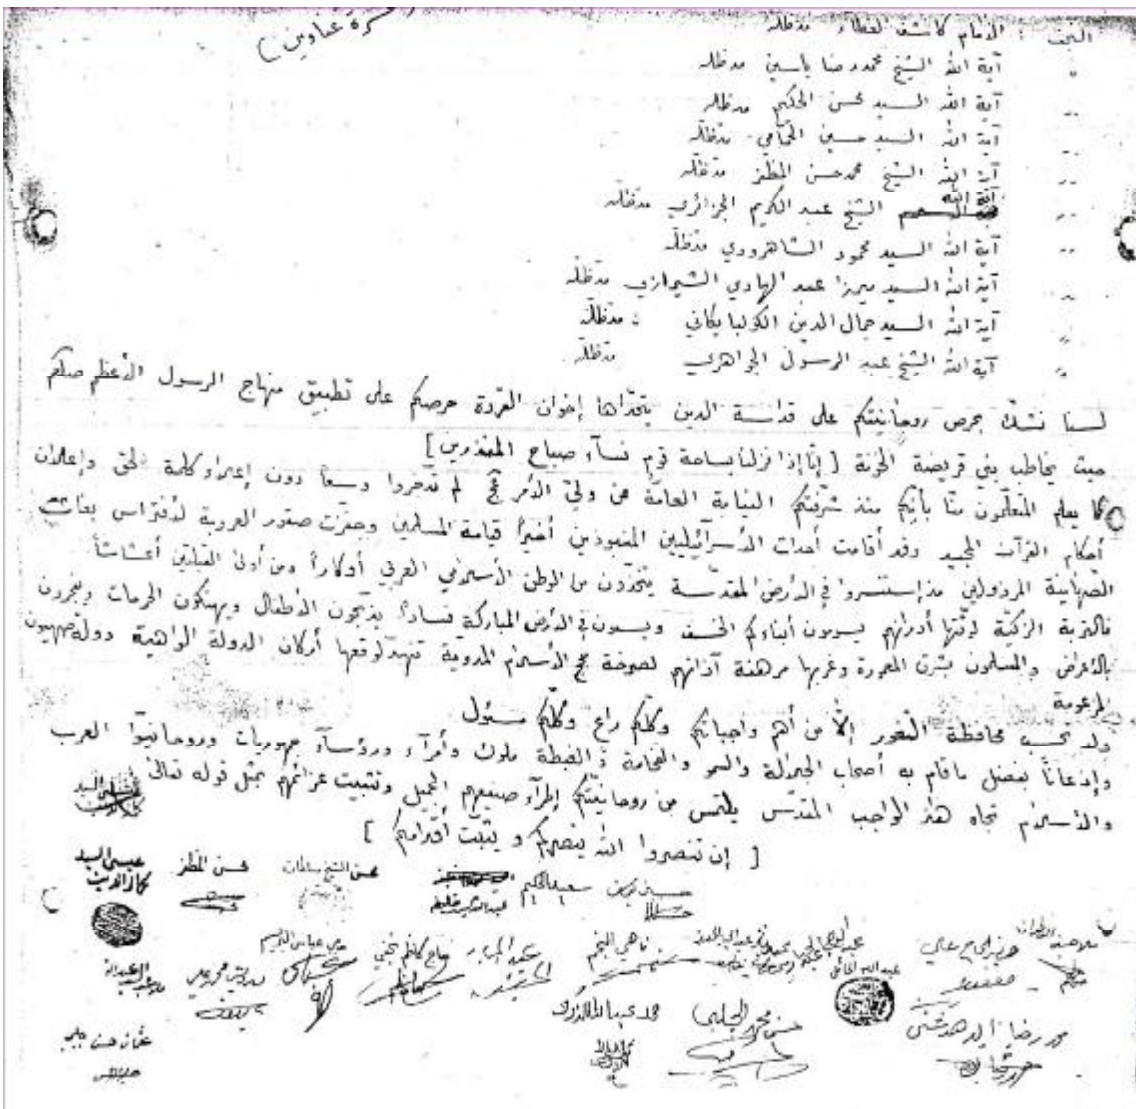 عناوين )
النجف : الامام كاشف الغطاء مدظله
" آية الله الشيخ محمد رضا ياسين مدظله
" آية الله السيد محسن الحكيم مدظله
" آية الله السيد حسين الحمامي مدظله
" آية الله الشيخ محمد حسن المظفر مدظله
" آية الله الشيخ عبد الكريم الجزائري مدظله
" آية الله السيد محمود الشاهرودي مدظله
" آية الله السيد ميرزا عبد الهادي الشيرازي مدظله
" آية الله السيد جمال الدين الكولبايكاني مدظله
" آية الله الشيخ عبد الرسول الجواهري مدظله
لسنا نشك بحرص روحانيتكم على قداسة الدين يتحداها إخوان القردة حرصكم على تطبيق منهاج الرسول الأعظم صلعم
حيث يخاطب بني قريضة الخونة [ إنا إذا نزلنا بساحة قوم فسآء صباح المنذرين ]
كما يعلم المتعلمون منا بأنكم منذ شرفتكم النيابة العامة عن ولي الأمر عج لم تدخروا وسعاً دون إعلاء كلمة الحق وإعلان
أحكام القرآن المجيد وقد أقامت أحداث الأسرآئيليين المنبوذين أخيراً قيامة المسلمين وحفزت صقور العروبة لأفتراس بغاث
الصهاينة المرذولين مذ إستنسروا في الأرض المقدسة يتخذون من الوطن الأسلامي العربي أوكاراً ومن أولى القبلتين أعشاشاً
فالتربة الزكية لوثتها أدرانهم يسومون أبناءكم الخسف ويسعون في الأرض المباركة فساداً يذبحون الأطفال ويهتكون الحرمات ويفجرون
بالأعراض والمسلمون بشرق المعمورة وغربها مرهفة آذانهم لصرخة حجج الأسلام المدوية تنهد لوقعها أركان الدولة الواهية دولة صهيون
المزعومة
ولا نحسب محافظة الثغور إلا من أهم واجباتكم وكلكم راع وكلكم مسئول
وإذعاناً بفضل ماقام به أصحاب الجلالة والسمو والفخامة والغبطة ملوك وأمرآء ورؤسآء جمهوريات وروحانيوا العرب
والأسلام تجاه هذا الواجب المقدس يلتمس من روحانيتكم إطرآء صنيعهم الجميل وتثبيت عزائمهم بمثل قوله تعالى
[ إن تنصروا الله ينصركم ويثبت أقدامكم ]
عيسى السيد محسن المظفر محسن الشيخ سلمان سعيد الحكيم
كمال الدين
حاج كاظم عبد الجبار ناهي
حسن محمد الجلبي محمد عبد الرزاق
محمد رضا
عثمان حسن جلبي